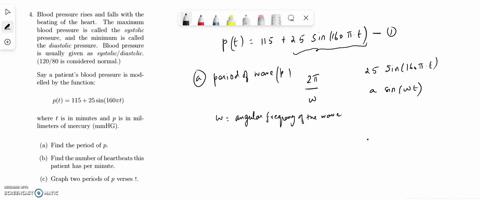 4. Blood pressure rises and falls with the
beating of the heart. The maximum
blood pressure is called the systolic
pressure, and the minimum is called
the diastolic pressure. Blood pressure
is usually given as systolic/diastolic.
(120/80 is considered normal.)
Say a patient's blood pressure is mod-
elled by the function:
p(t) = 115 + 25 sin(160πt)
where t is in minutes and p is in mil-
limeters of mercury (mmHG).
(a) Find the period of p.
(b) Find the number of heartbeats this
patient has per minute.
(c) Graph two periods of p verses t.
p(t) = 115 + 25 sin(160 π t) — ①
ⓐ period of wave (p) 2π/w
25 sin(160 π t)
a sin(wt)
w = angular frequency of the wave
SCREENCAST MATIC